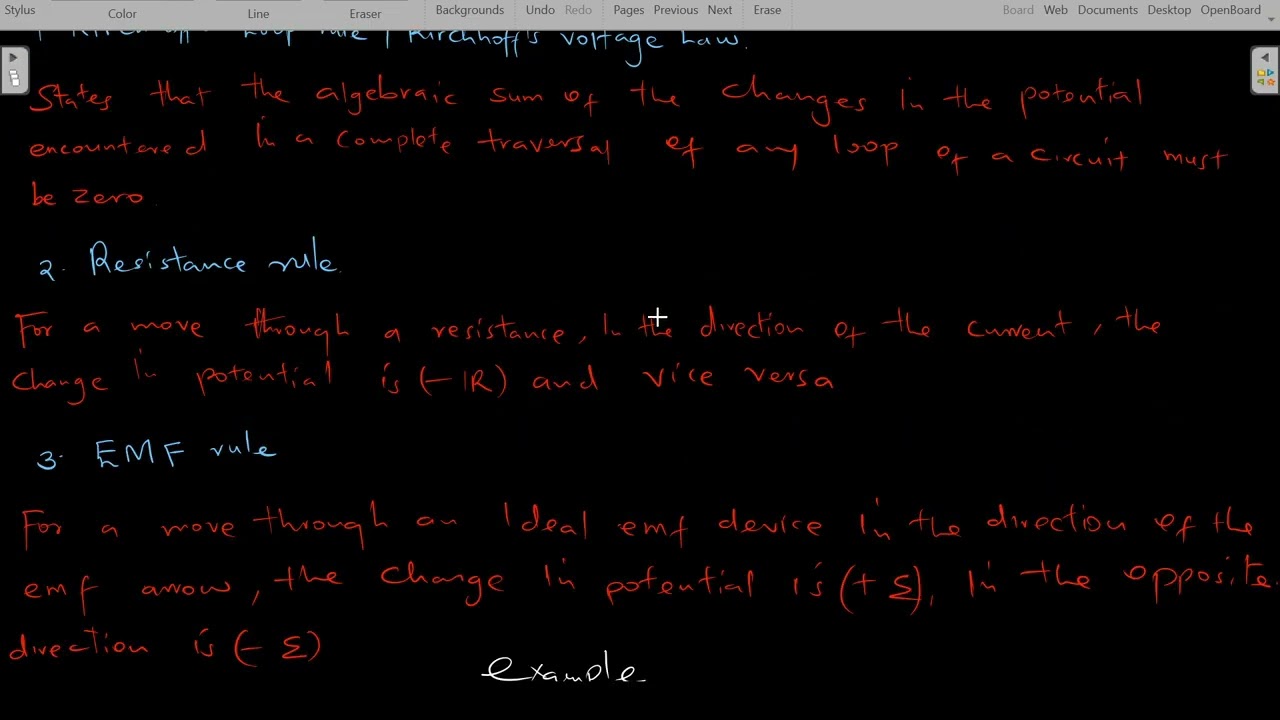 Stylus Color Line Eraser Backgrounds Undo Redo Pages Previous Next Erase Board Web Documents Desktop OpenBoard
Loop rule / Kirchhoff's Voltage Law.
States that the algebraic sum of the changes in the potential
encountered in a complete traversal of any loop of a circuit must
be zero.
2. Resistance rule.
For a move through a resistance, in the direction of the current, the
change in potential is (-IR) and vice versa
3. EMF rule
For a move through an ideal emf device in the direction of the
emf arrow, the change in potential is (+ Σ), in the opposite
direction is (- Σ)
example